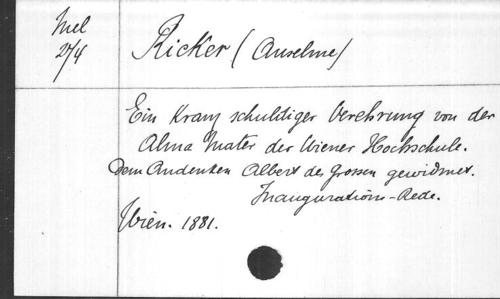 Mel
27/4
Ricker (Anselme)
Ein Kranz schuldiger Verehrung von der
Alma Mater der Wiener Hochschule.
Dem Andenken Albert des Grossen gewidmet.
Inaugurations-Rede.
Wien. 1881.